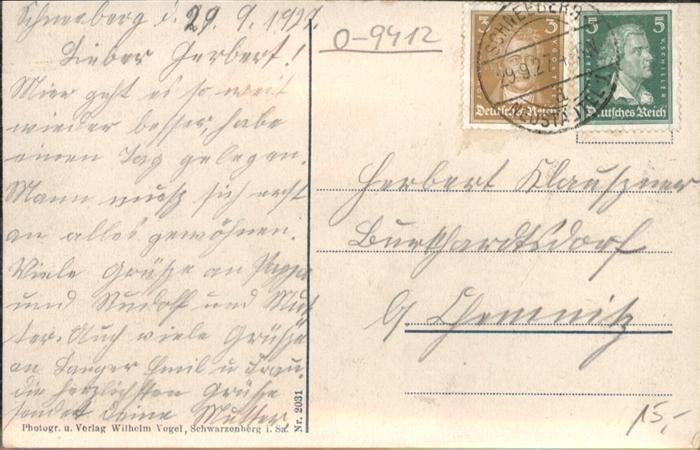 Schneeberg d. 29. 9. 1927.
Lieber Herbert!
Mier geht es so weit
wieder besser, habe
einen Tag gelegen.
Mann musz sich erst
an alles gewöhnen.
Viele Grüsze an Pappa
und Rudolf und Mut-
ter. Auch viele Grüsze
an Langer Emil u Frau.
die herzlichsten Grüsze
sendet Deine Mutter.
Photogr. u. Verlag Wilhelm Vogel, Schwarzenberg i. Sa. Nr. 2031
0-9412
3 3
Deutsches Reich
5 SCHILLER 5
Deutsches Reich
SCHNEEBERG
29.9.27
NEUSTÄDTEL
Herbert Klauszner
Burkhardtsdorf
b/ Chemnitz
15,-